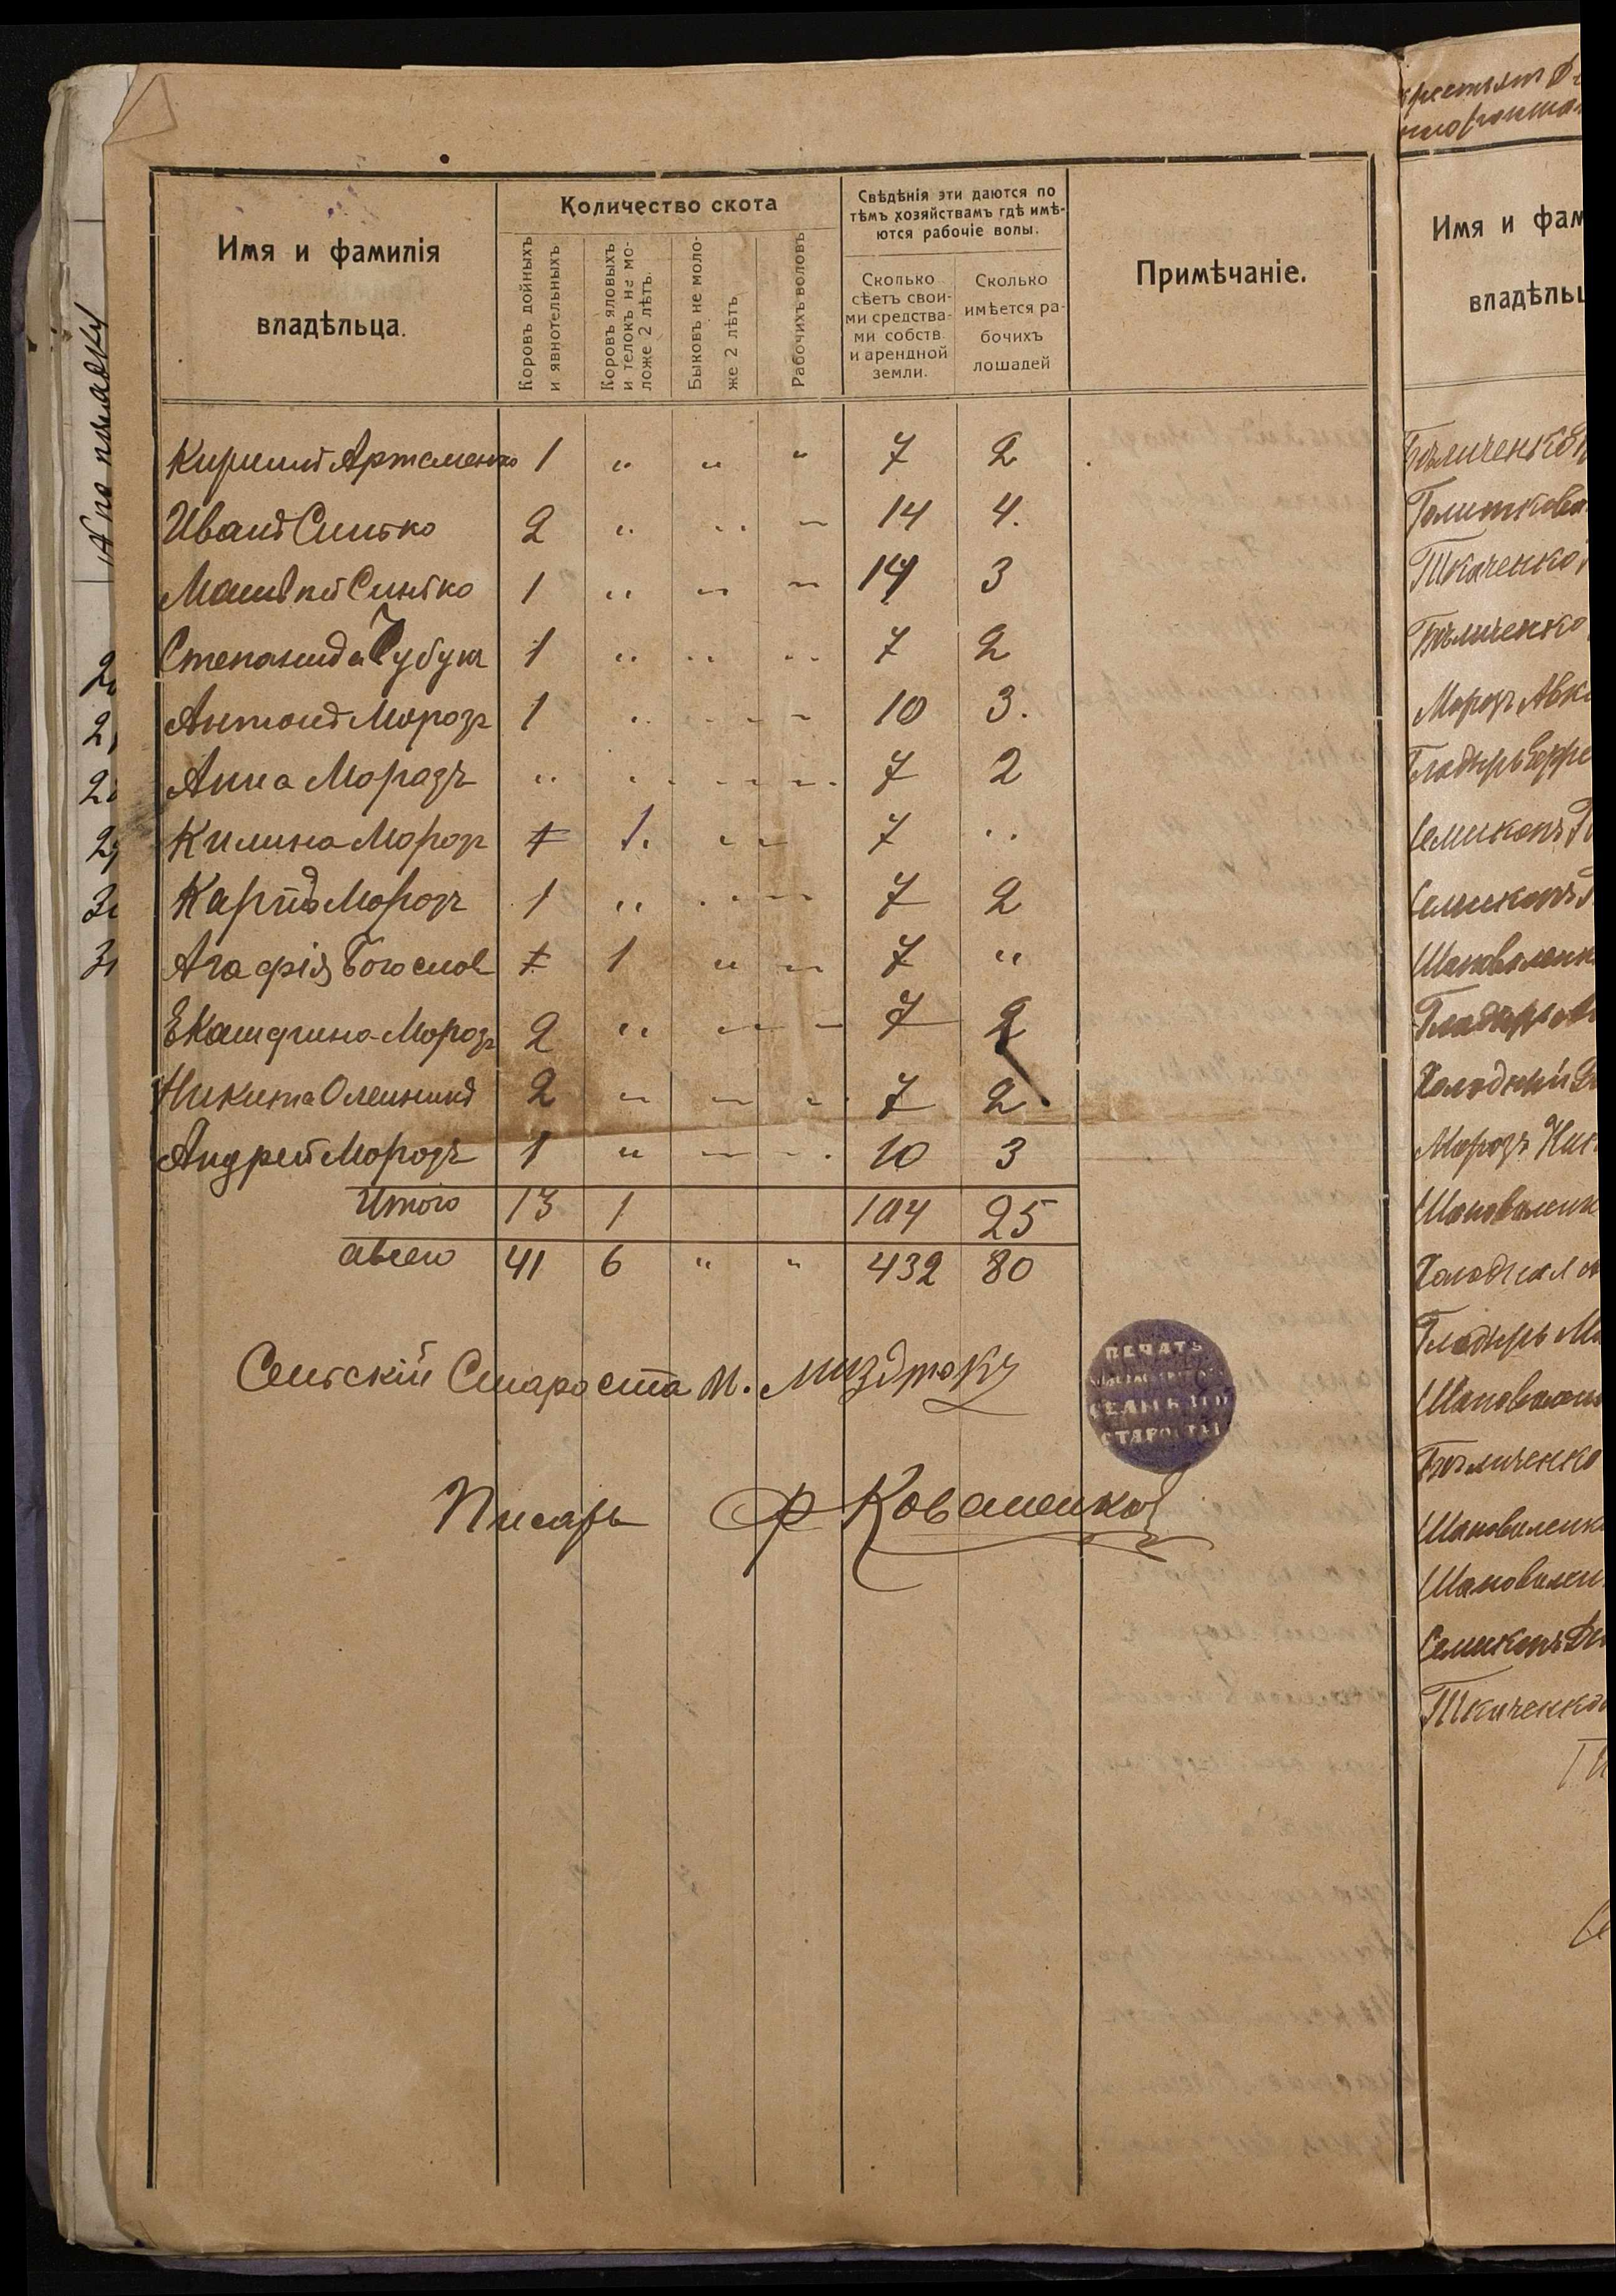 Имя и фамилія владѣльца.
Количество скота
Коровъ дойныхъ и явнотельныхъ
Коровъ яловыхъ и телокъ не моложе 2 лѣтъ.
Быковъ не моложе 2 лѣтъ
Рабочихъ воловъ
Свѣдѣнія эти даются по тѣмъ хозяйствамъ гдѣ имѣются рабочіе волы.
Сколько сѣетъ своими средствами собств. и арендной земли.
Сколько имѣется рабочихъ лошадей
Примѣчаніе.
Кирилъ Артеменко 1 " " " 7 2
Иванъ Синько 2 " " " 14 4.
Матвѣй Синько 1 " " " 14 3
Степанида Чубука 1 " " " 7 2
Антонъ Морозъ 1 " " " 10 3.
Анна Морозъ " " " " 7 2
Килина Морозъ 1 1. " " 7 "
Карпъ Морозъ 1 " " " 7 2
Агафія Богослов 1 1 " " 7 "
Екатерина Морозъ 2 " " " 7 2
Никита Олейникъ 2 " " " 7 2
Андрей Морозъ 1 " " " 10 3
Итого 13 1 104 25
авсего 41 6 " " 432 80
Сельскій Староста М.
Писарь Ф Коваленко
ПЕЧАТЬ
СЕЛЬСКАГО
СТАРОСТЫ
Имя и фам
владѣльц
Бѣличенко
Ткаченко
Бѣличенко
Морозъ
Гладырь
Семикопъ
Семикопъ
Шаповаленк
Гладырь
Холодный
Морозъ Ник
Шаповаленк
Гладырь
Шаповален
Бѣличенко
Шаповаленк
Шаповален
Семикопъ
Ткаченко